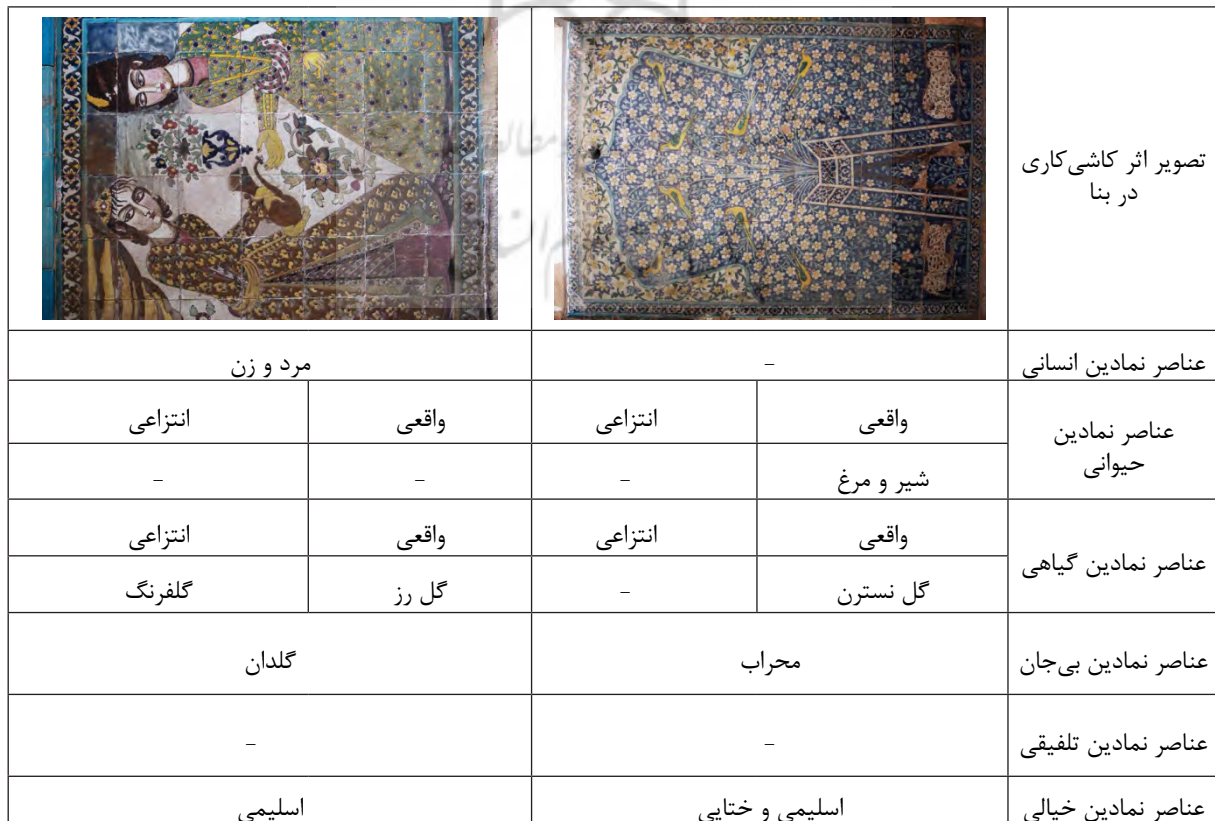 تصویر اثر کاشی‌کاری
در بنا
عناصر نمادین انسانی
–
مرد و زن
عناصر نمادین
حیوانی
واقعی
انتزاعی
واقعی
انتزاعی
شیر و مرغ
–
–
–
عناصر نمادین گیاهی
واقعی
انتزاعی
واقعی
انتزاعی
گل نسترن
–
گل رز
گلفرنگ
عناصر نمادین بی‌جان
محراب
گلدان
عناصر نمادین تلفیقی
–
–
عناصر نمادین خیالی
اسلیمی و ختایی
اسلیمی